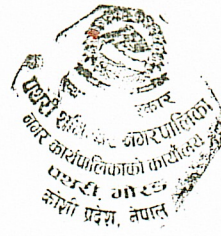 पथरी शनिश्चरे नगरपालिका
नगर कार्यपालिकाको कार्यालय
पथरी, मोरङ
कोशी प्रदेश, नेपाल